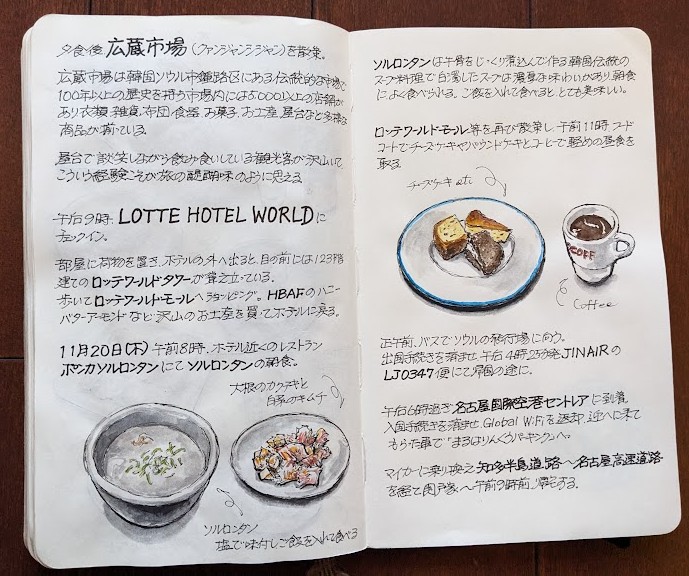 夕食後 広蔵市場(クァンジャンシジャン)を散策。
広蔵市場は韓国ソウル市鍾路区にある伝統的な市場で
100年以上の歴史を持つ市場内には5000以上の店舗が
あり衣類、雑貨、布団、食器、お菓子、お土産、屋台など多様な
商品が揃ている。
屋台で談笑しながら飲み食いしている観光客が沢山いて
こういう経験こそが旅の醍醐味のように思える
午后9時、LOTTE HOTEL WORLDに
チェックイン。
部屋に荷物を置き、ホテルの外へ出ると、目の前には123階
建てのロッテワールドタワーが聳え立っている。
歩いてロッテワールドモールへショッピング。HBAFのハニー
バターアーモンドなど沢山のお土産を買ってホテルに戻る。
11月20日(木) 午前8時、ホテル近くのレストラン
ポッカソルロンタンにてソルロンタンの朝食。
大根のカクテキと
白菜のキムチ
ソルロンタン
塩で味付しご飯を入れて食べる
ソルロンタンは牛骨をじっくり煮込んで作る韓国伝統の
スープ料理で白濁したスープは濃厚な味わいがあり、朝食
によく食べられる。ご飯を入れて食べると、とても美味しい。
ロッテワールドモール等を再び散策し、午前11時、フード
コートでチーズケーキやパウンドケーキとコーヒーで軽めの昼食を
取る。
チーズケーキ etc
COFF
Coffee
正午前、バスでソウルの飛行場に向う。
出国手続きを済ませ、午后4時25分発JINAIRの
LJ0347便にて帰国の途に。
午后6時過ぎ名古屋国際空港セントレアに到着。
入国手続きを済ませ、Global WiFiを返却、迎へに来て
もらた車で"まるはりんくうパーキング"へ。
マイカーに乗り換え知多半島道路〜名古屋高速道路
を経て関戸家へ午后9時前、帰宅する。